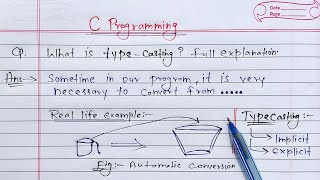 C Programming
Date
Page
Qn. What is type-casting? Full explanation.
Ans:- Sometime in our program, it is very
necessary to convert from .....
Real life example:-
Typecasting:-
→ Implicit
→ Explicit
Fig:- Automatic Conversion